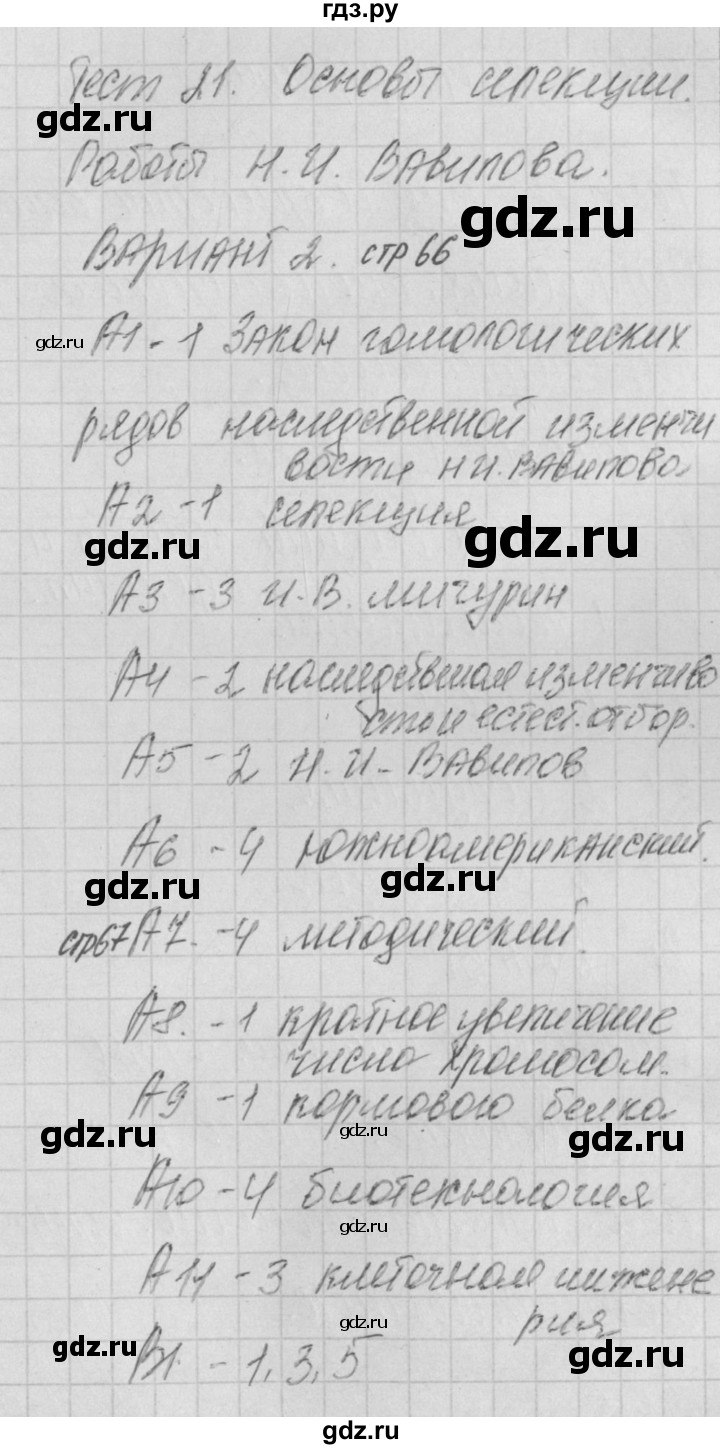 гдз.ру
Тест 21. Основы селекции.
gdz.ru
Работы Н.И. Вавилова.
gdz.ru
Вариант 2. стр 66
gdz.ru
А1 - 1 Закон гомологических
рядов наследственной изменчи
вости Н.И. Вавилова
А2 - 1 селекция
gdz.ru gdz.ru
А3 - 3 И.В. Мичурин
А4 - 2 наследственная изменчиво
сть и естест. отбор.
А5 - 2 Н.И. Вавилов
А6 - 4 Южноамериканский.
gdz.ru gdz.ru
стр67 А7. - 4 методический.
А8. - 1 кратное увеличение
число хромосом.
А9 - 1 кормового белка
gdz.ru gdz.ru
А10 - 4 биотехнология
gdz.ru
А11 - 3 клеточная инжене
рия
gdz.ru
В1. - 1, 3, 5
gdz.ru gdz.ru
gdz.ru